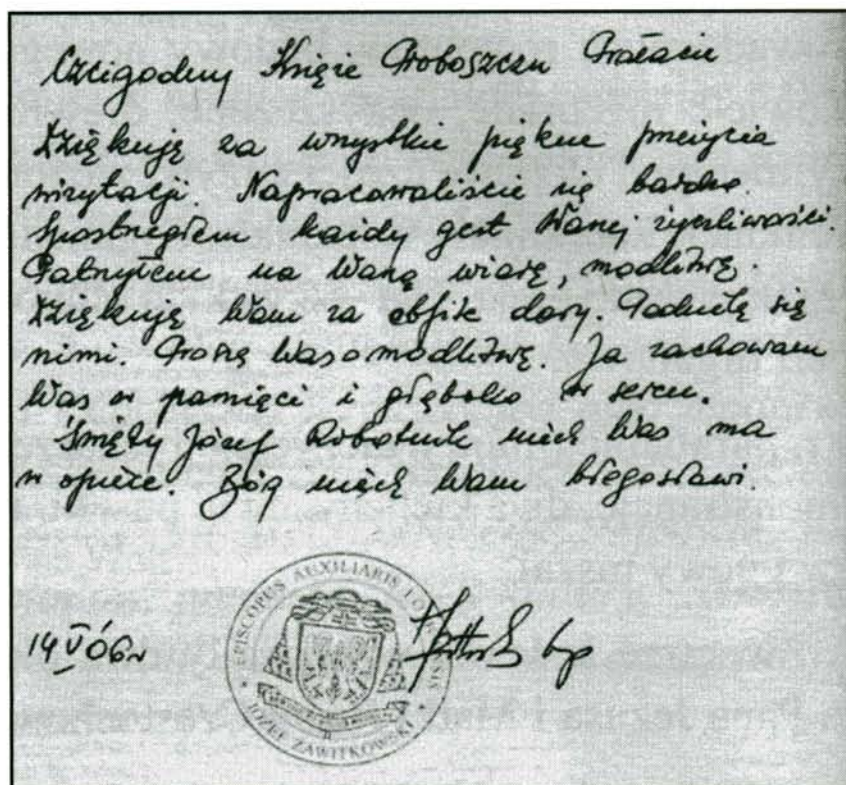 Czcigodny Księże Proboszczu Prałacie
Dziękuję za wszystkie piękne przeżycia
wizytacji. Napracowaliście się bardzo.
Spostrzegłem każdy gest Waszej życzliwości.
Patrzyłem na Waszą wiarę, modlitwę.
Dziękuję Wam za obfite dary. Podzielę się
nimi. Proszę Was o modlitwę. Ja zachowam
Was w pamięci i głęboko w sercu.
Święty Józef Robotnik niech Was ma
w opiece. Bóg niech Wam błogosławi.
14 V 06r
EPISCOPUS AUXILIARIS
JÓZEF ZAWITKOWSKI
bp
Pana Jezusa i